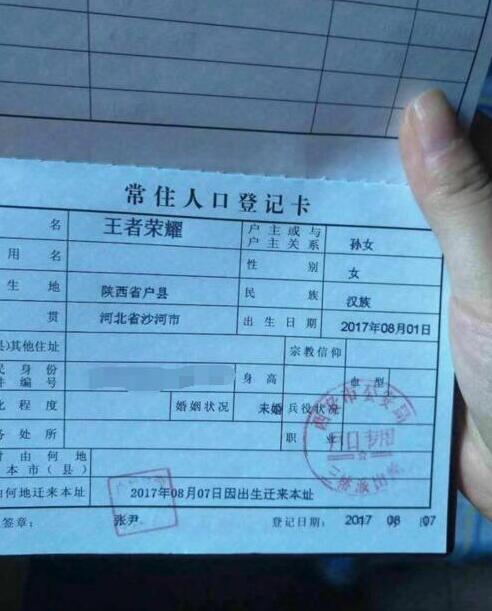 常住人口登记卡
名 王者荣耀 户主或与户主关系 孙女
用名 性别 女
生地 陕西省户县 民族 汉族
贯 河北省沙河市 出生日期 2017年08月01日
县)其他住址 宗教信仰
民身份
件编号 身高 血型
化程度 婚姻状况 未婚 兵役状况
务处所 职业
时由何地
本市（县）
由何地迁来本址 2017年08月07日因出生迁来本址
签章： 张尹 登记日期： 2017 08 07
户口专用